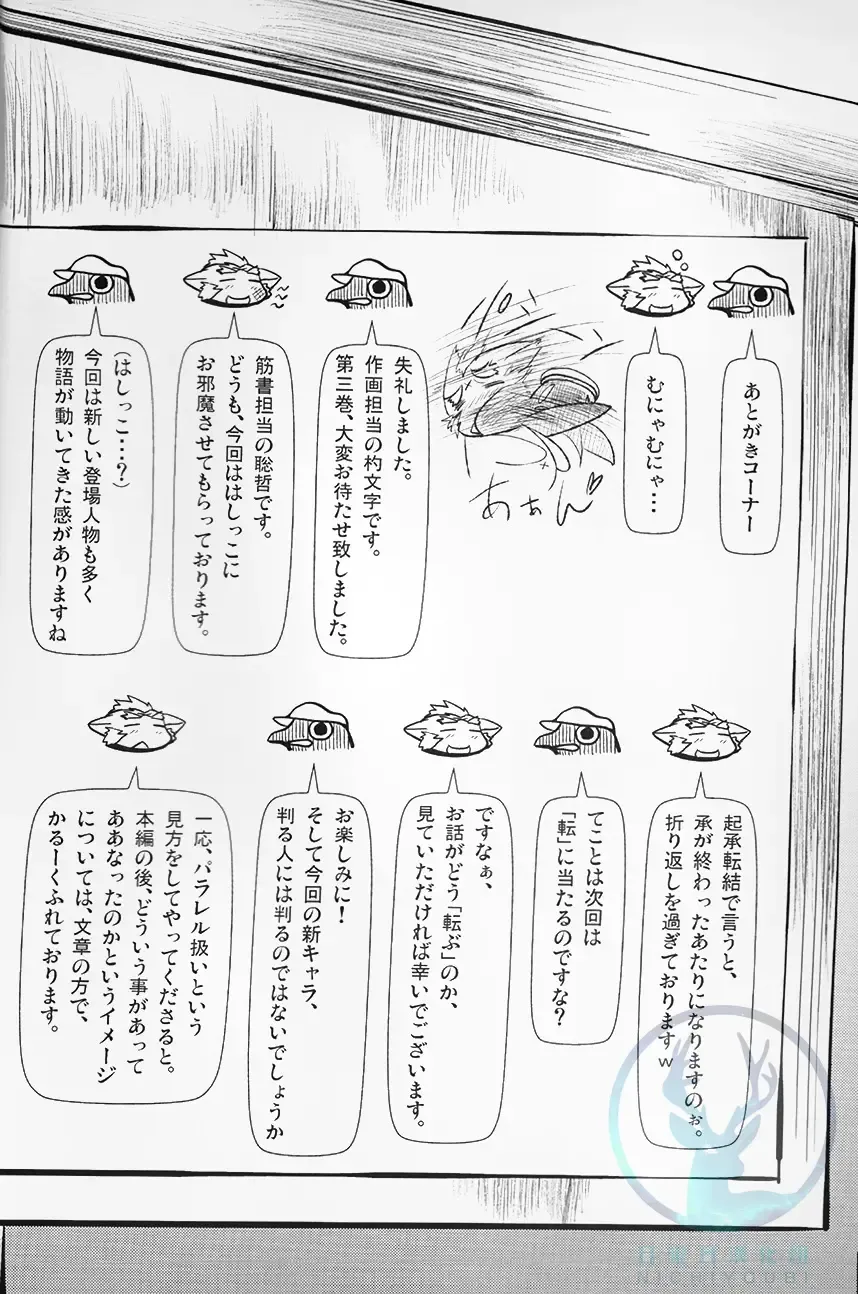 あとがきコーナー
むにゃむにゃ…
あぁん♡
失礼しました。
作画担当の杓文字です。
第三巻、大変お待たせ致しました。
筋書担当の聡哲です。
どうも、今回ははしっこに
お邪魔させてもらっております。
(はしっこ…?)
今回は新しい登場人物も多く
物語が動いてきた感がありますね
起承転結で言うと、
承が終わったあたりになりますのぉ。
折り返しを過ぎておりますw
てことは次回は
「転」に当たるのですな?
ですなぁ、
お話がどう「転ぶ」のか、
見ていただければ幸いでございます。
お楽しみに!
そして今回の新キャラ、
判る人には判るのではないでしょうか
一応、パラレル扱いという
見方をしてやってくださると。
本編の後、どういう事があって
ああなったのかというイメージ
については、文章の方で、
かるーくふれております。
NICHIYOOBI